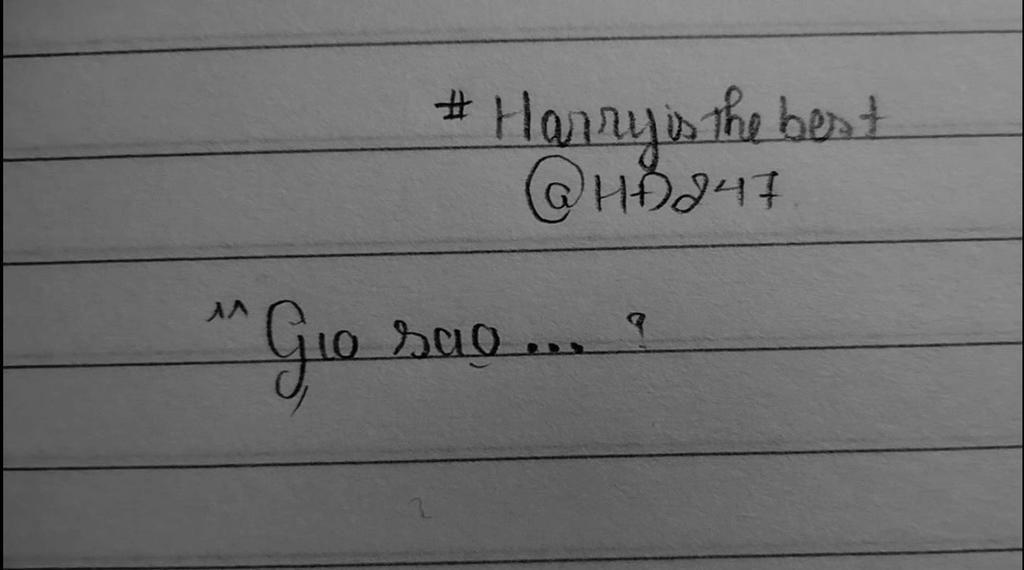 # Harry is the best
@HD247
" Gio sao... ?